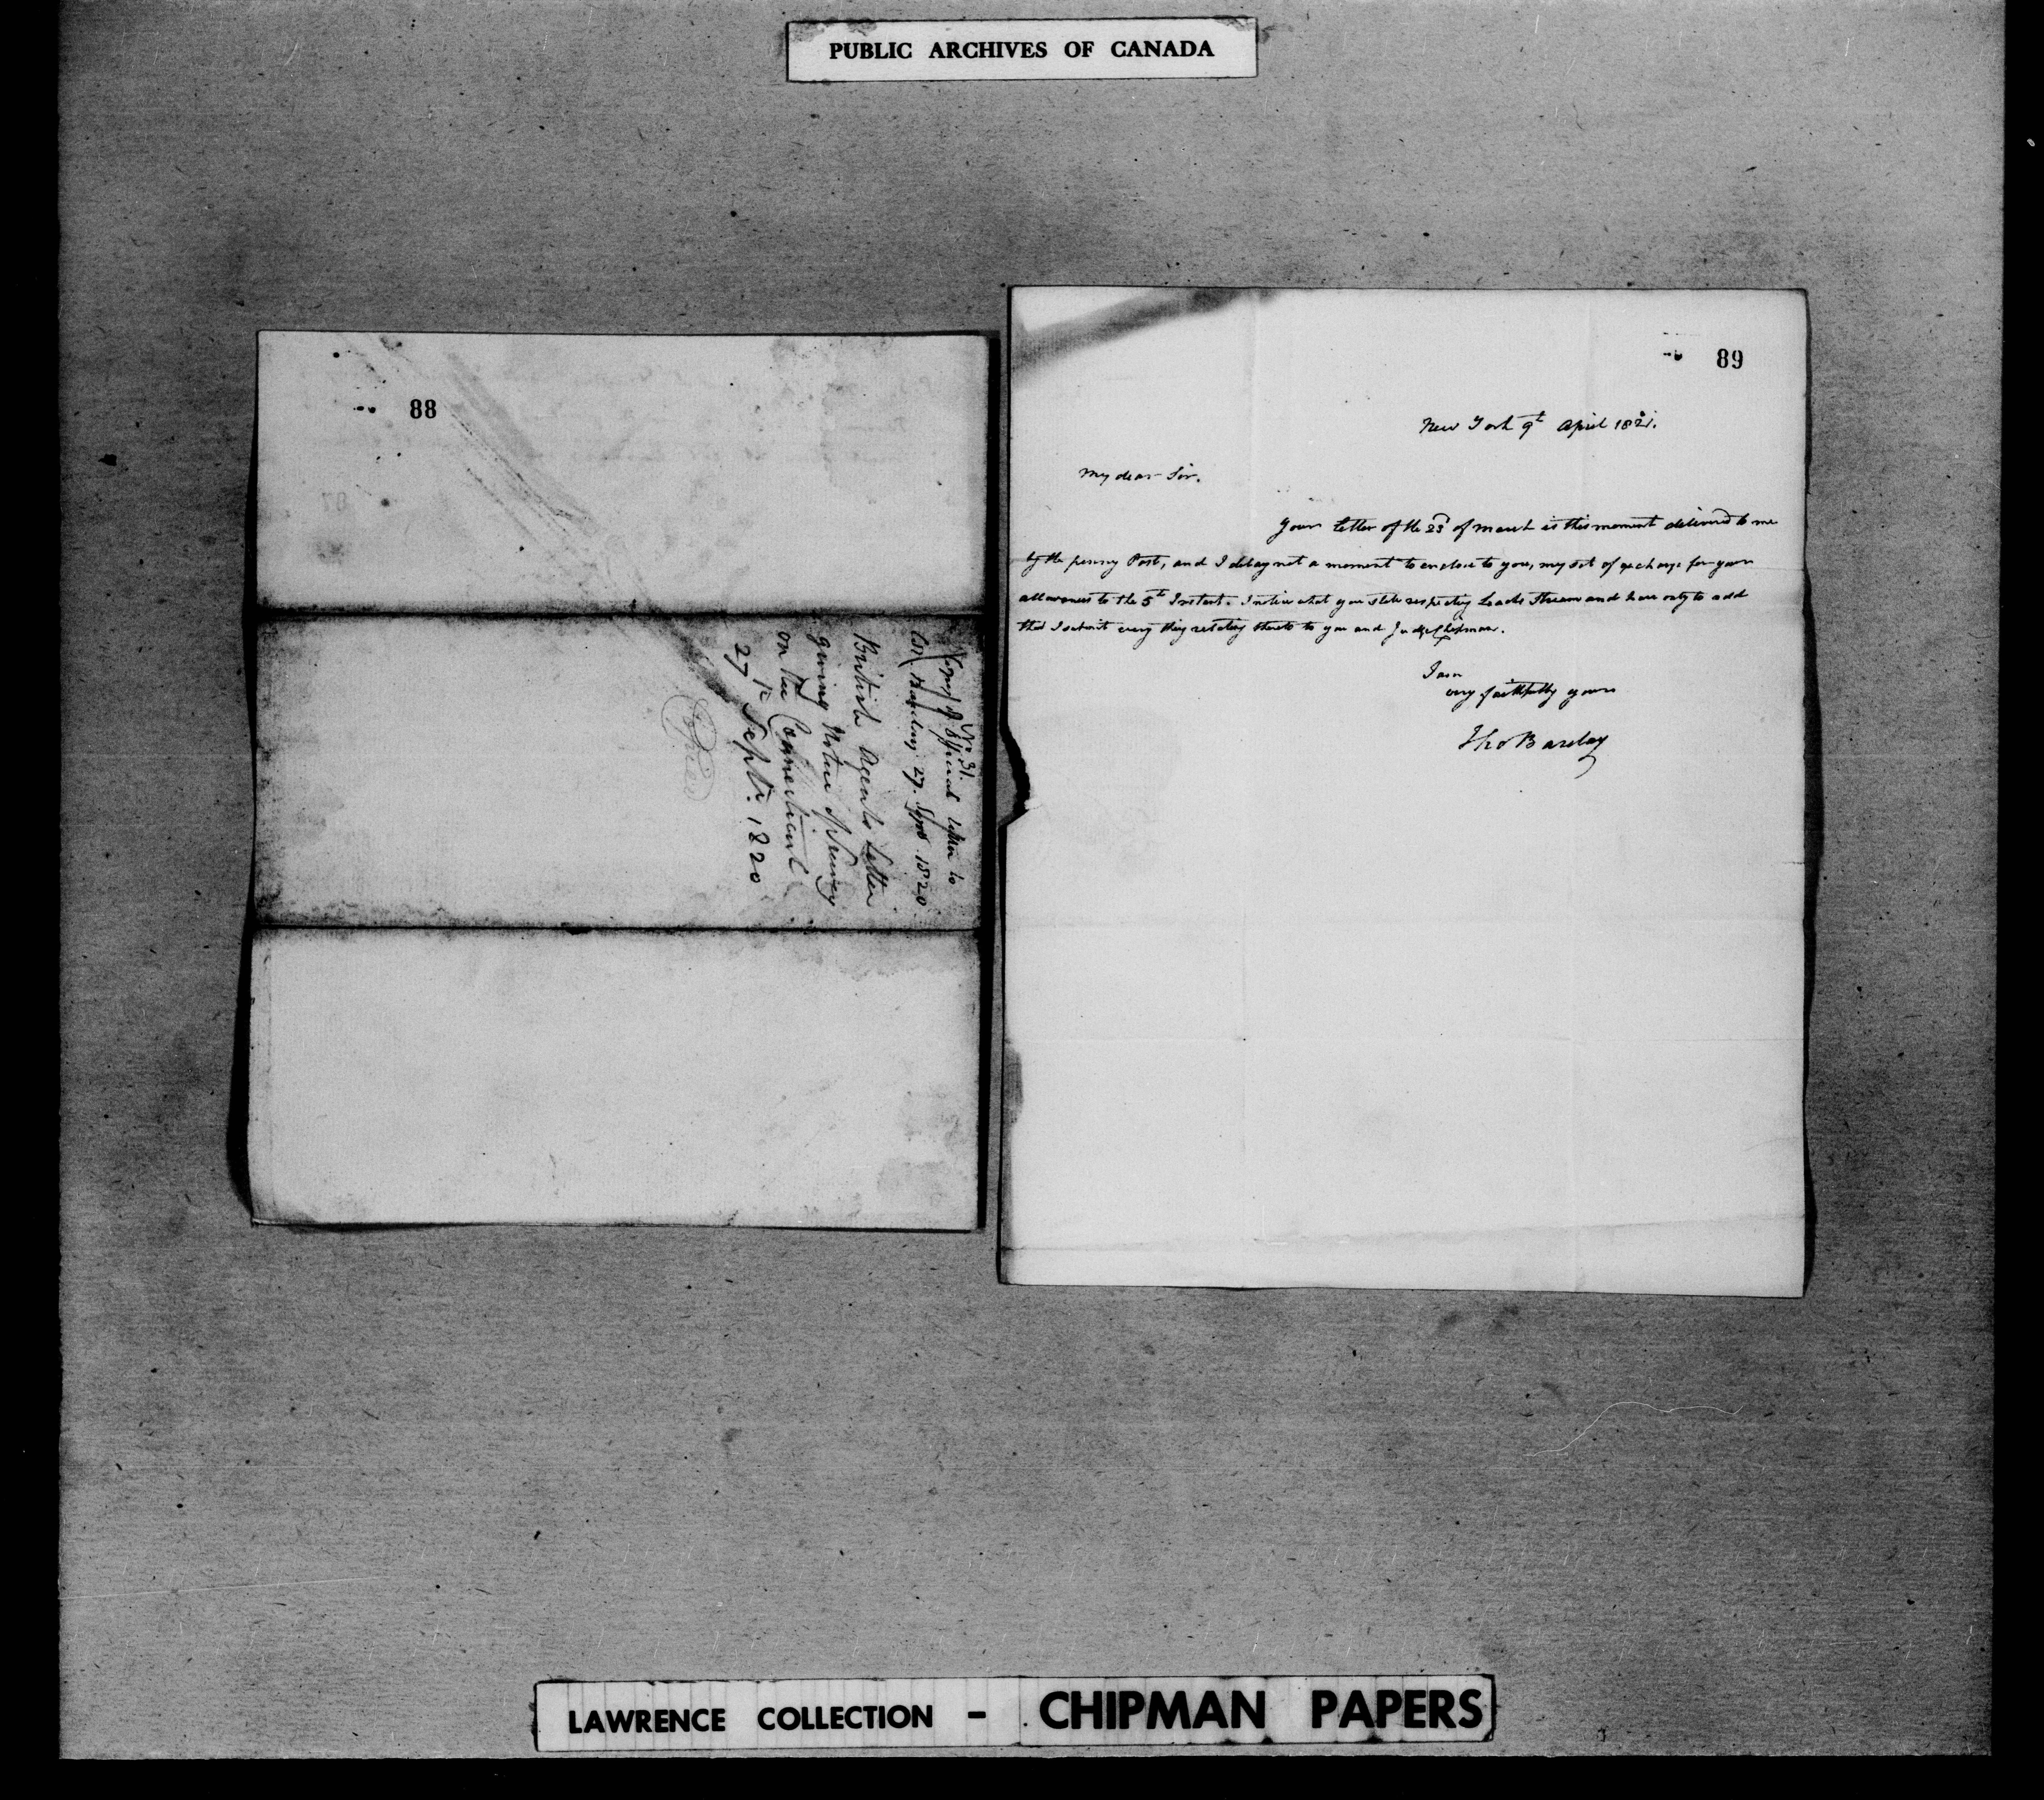 PUBLIC ARCHIVES OF CANADA
88
No. 31.
Copy of Official letter to
Col. Barclay 27. Sept 1820
British Agents Letter
giving Notice of Seizing
on the
27th Septr. 1820
Copied
89
New York 9th April 1821.
My dear Sir.
Your Letter of the 23d of March is this moment delivered to me
by the penny Post, and I delay not a moment to enclose to you, my set of exchange for your
allowances to the 5th Instant. I notice what you state respecting Stream and have only to add
that I submit every thing relating thereto to you and Judge Chipman.
I am
very faithfully yours
Tho Barclay
LAWRENCE COLLECTION - CHIPMAN PAPERS